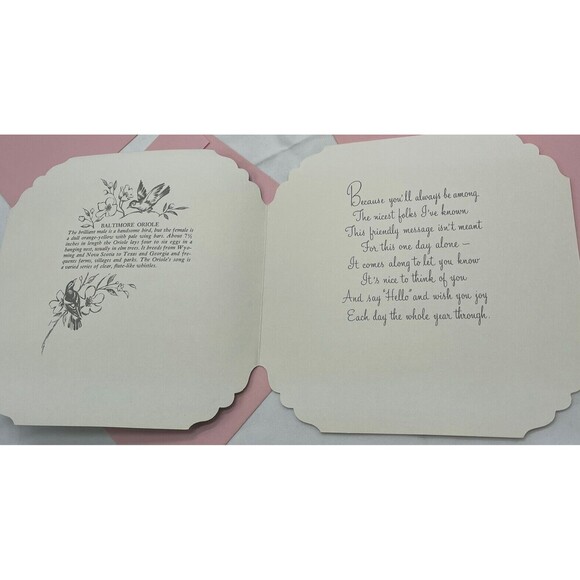 BALTIMORE ORIOLE
The brilliant male is a handsome bird, but the female is
a dull orange-yellow with pale wing bars. About 7½
inches in length the Oriole lays four to six eggs in a
hanging nest, usually in elm trees. It breeds from Wyo-
ming and Nova Scotia to Texas and Georgia and fre-
quents farms, villages and parks. The Oriole's song is
a varied series of clear, flute-like whistles.
Because you'll always be among
The nicest folks I've known
This friendly message isn't meant
For this one day alone —
It comes along to let you know
It's nice to think of you
And say "Hello" and wish you joy
Each day the whole year through.